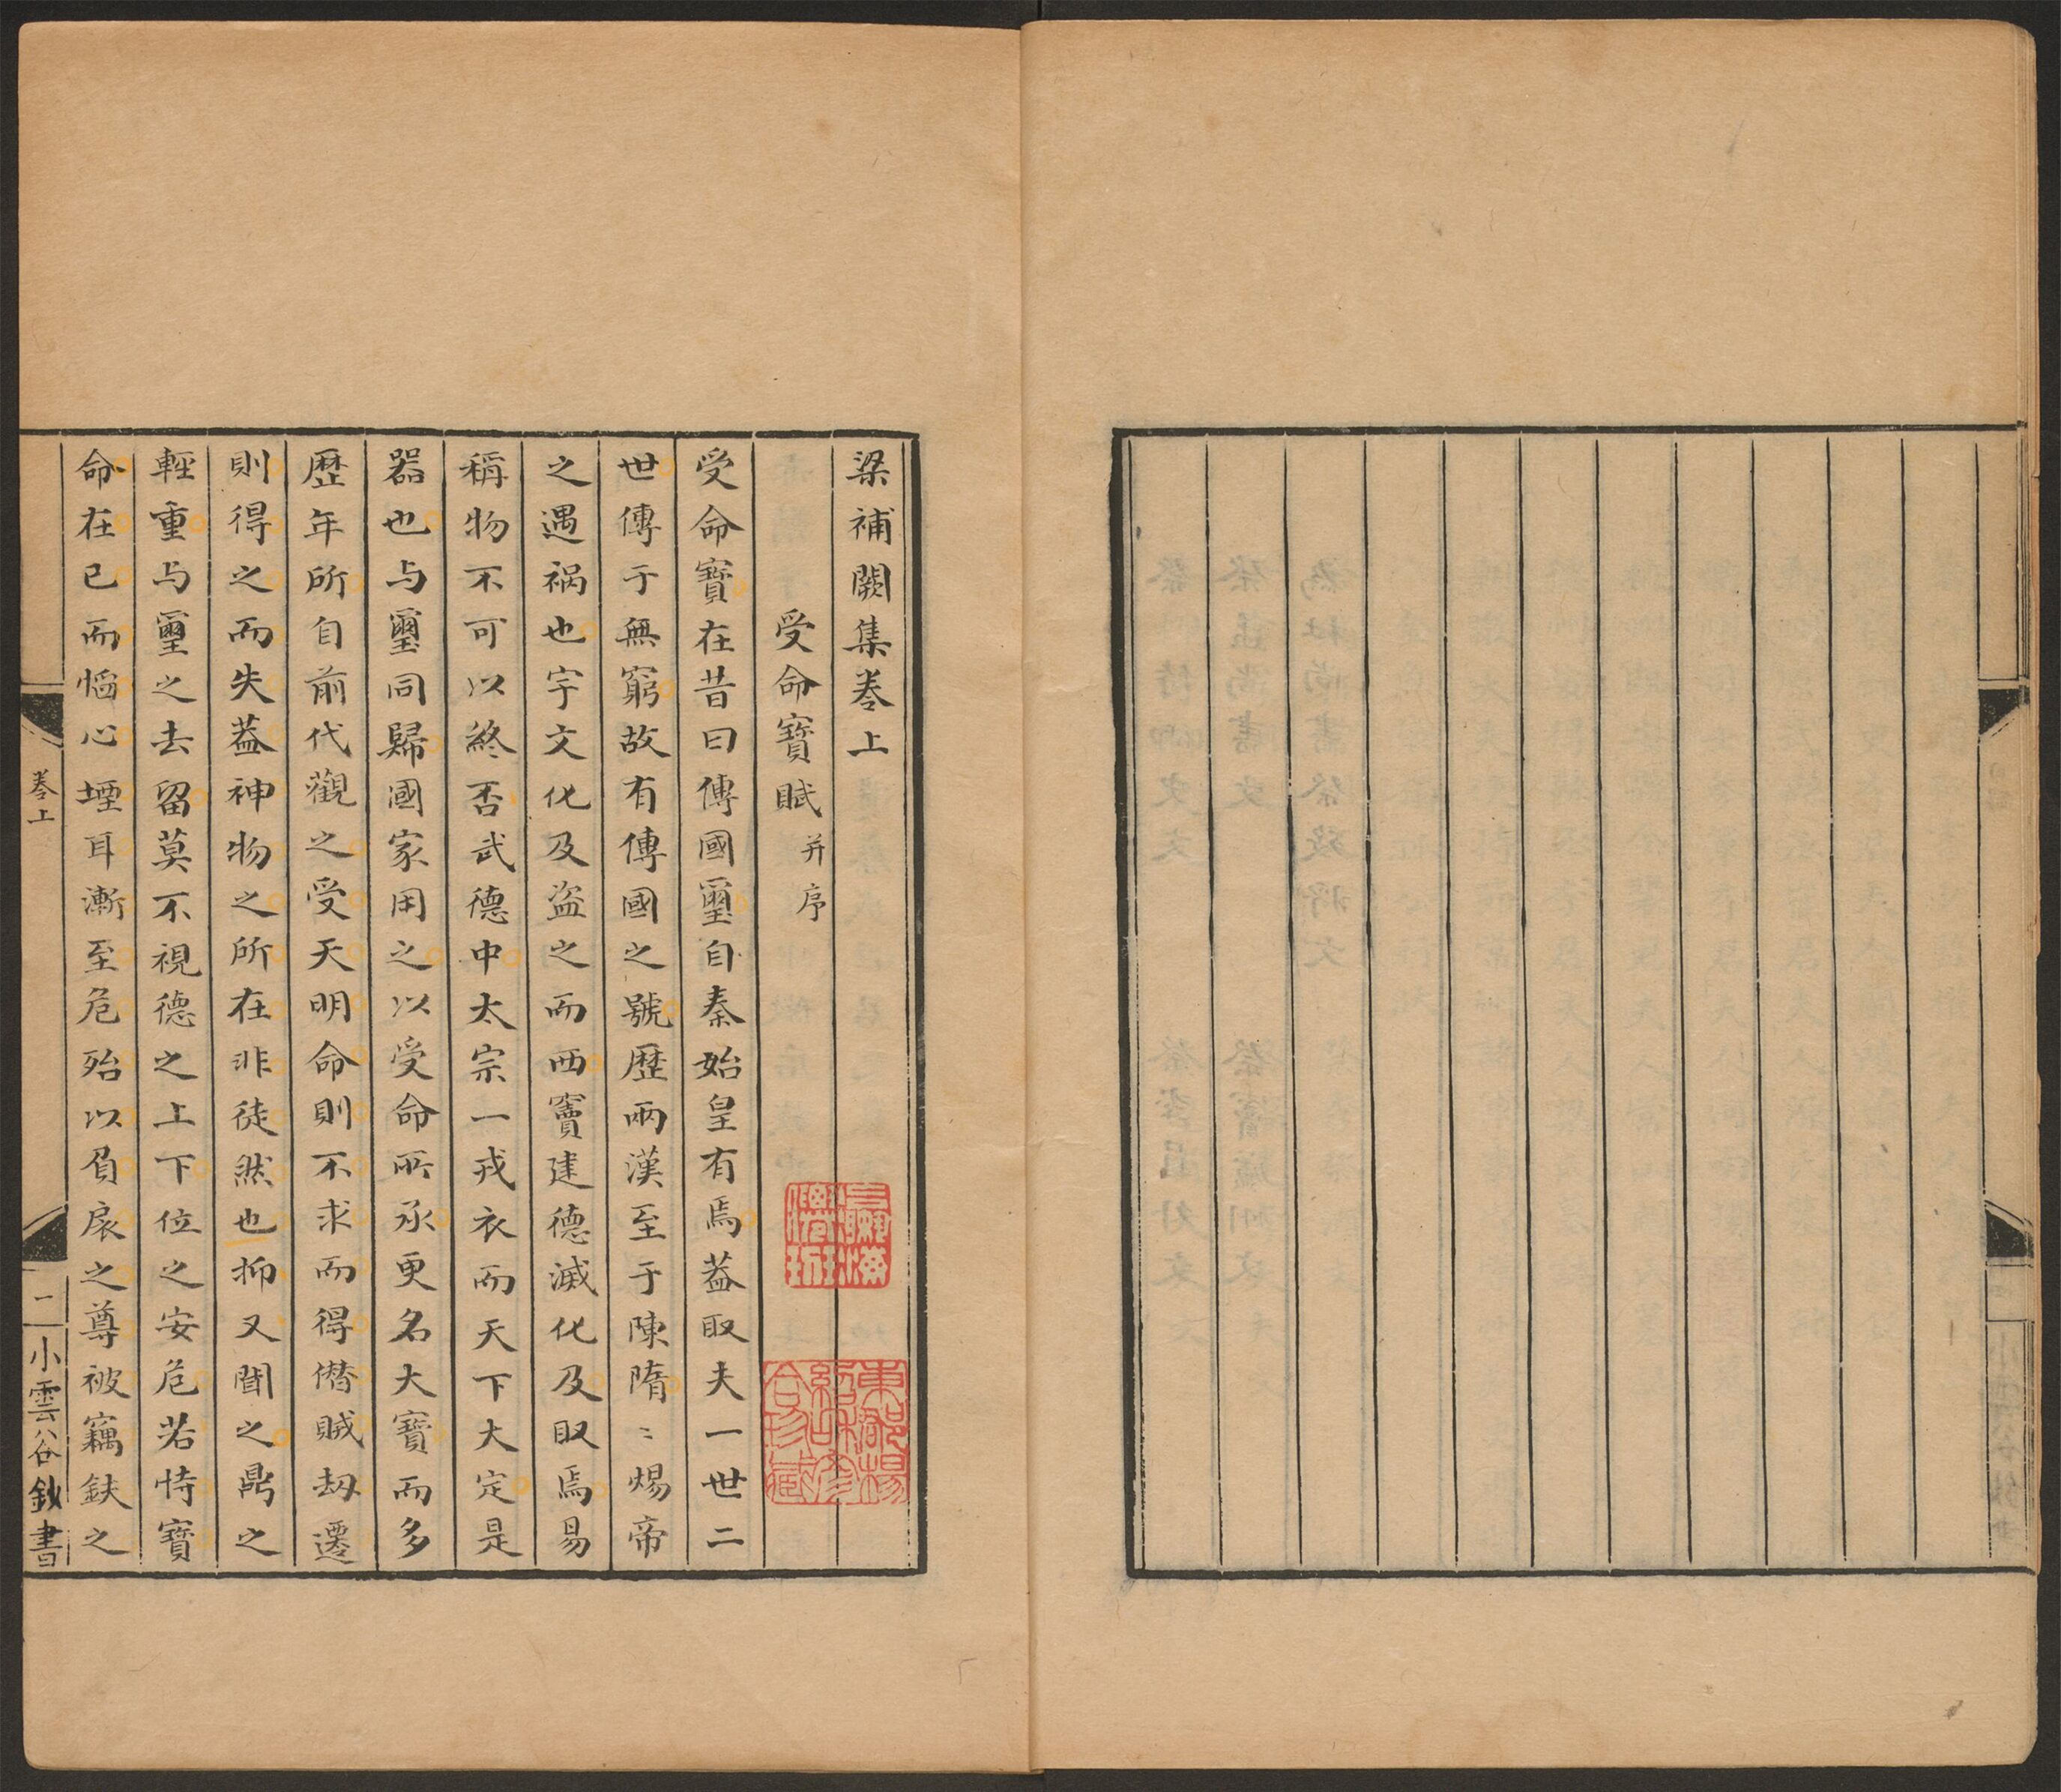 梁補闕集卷上
受命寶賦并序
受命寶在昔曰傳國璽自秦始皇有焉蓋取夫一世二
世傳于無窮故有傳國之號歷兩漢至于陳隋〻煬帝
之遇禍也宇文化及盗之而西竇建德滅化及取焉易
稱物不可以終否武德中太宗一戎衣而天下大定是
器也与璽同歸國家用之以受命所承更名大寶而多
歷年所自前代觀之受天明命則不求而得僭賊刼遷
則得之而失蓋神物之所在非徒然也抑又聞之鼎之
輕重与璽之去留莫不視德之上下位之安危若恃寶
命在已而慆心堙耳漸至危殆以負扆之尊被竊鈇之
卷上
二
小雲谷鈔書